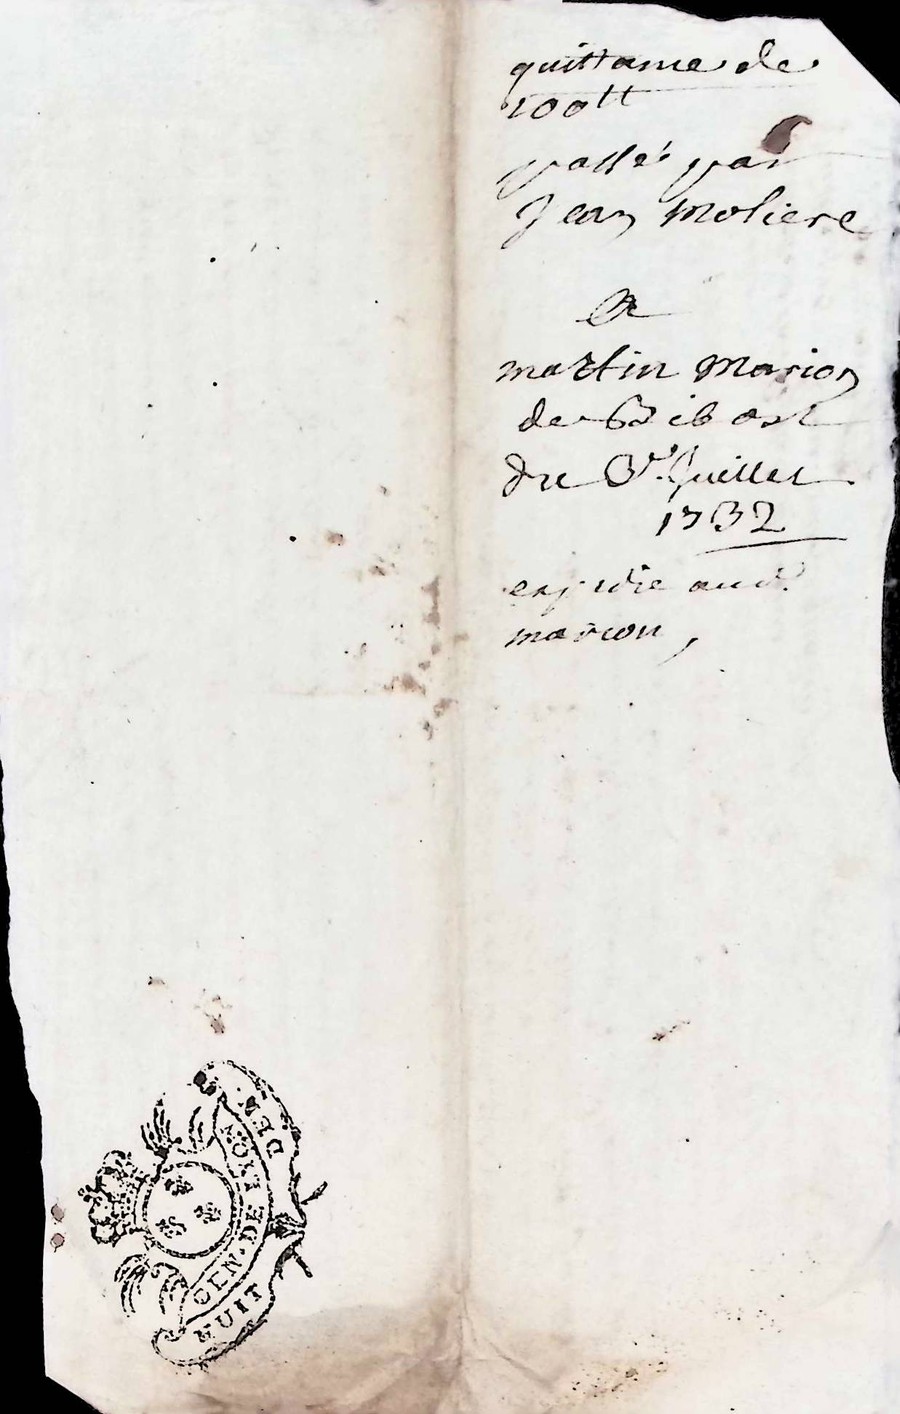 quittance de
100tt
passé par
Jean Moliere
A
martin Marion
de Bibost
du 3e. Juillet
1732
expedie aud.
marion,
GEN·DE LYON
HUIT DEN